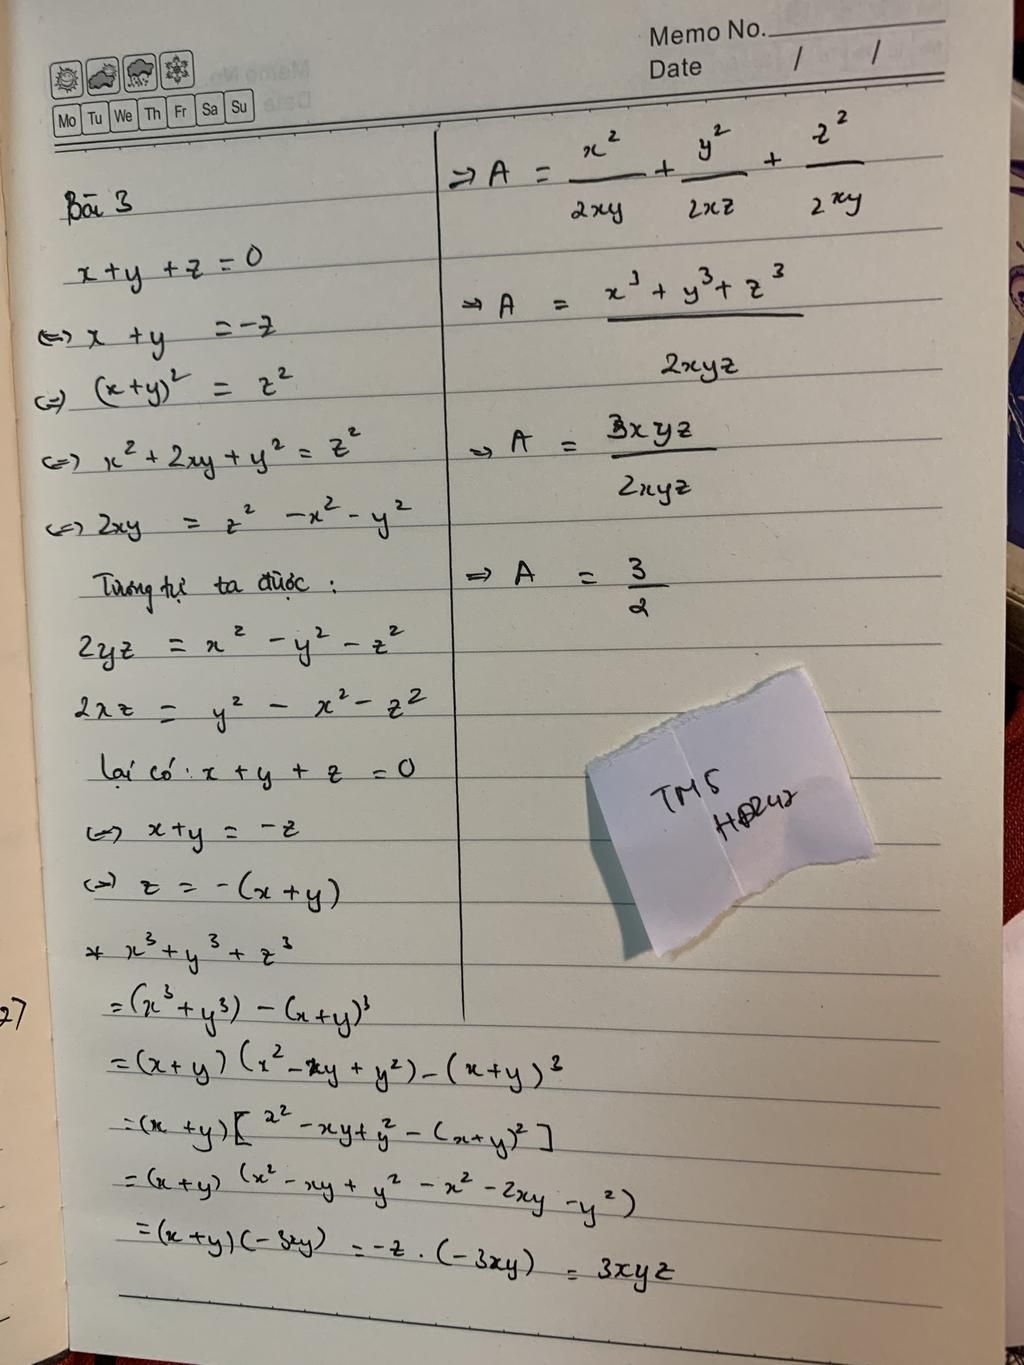 Memo No.
Date / /
Mo Tu We Th Fr Sa Su
Bài 3
x + y + z = 0
<=> x + y = -z
<=> (x+y)² = z²
<=> x² + 2xy + y² = z²
<=> 2xy = z² - x² - y²
Tương tự ta được :
2yz = x² - y² - z²
2xz = y² - x² - z²
lại có : x + y + z = 0
<=> x + y = -z
<=> z = -(x + y)
* x³ + y³ + z³
= (x³ + y³) - (x + y)³
= (x + y) (x² - xy + y²) - (x + y)³
= (x + y) [ x² - xy + y² - (x+y)² ]
= (x + y) (x² - xy + y² - x² - 2xy - y²)
= (x + y) (-3xy) = -z . (-3xy) = 3xyz
=> A = x²/2xy + y²/2xz + z²/2xy
=> A = x³ + y³ + z³ / 2xyz
=> A = 3xyz / 2xyz
=> A = 3/2
TM5
27